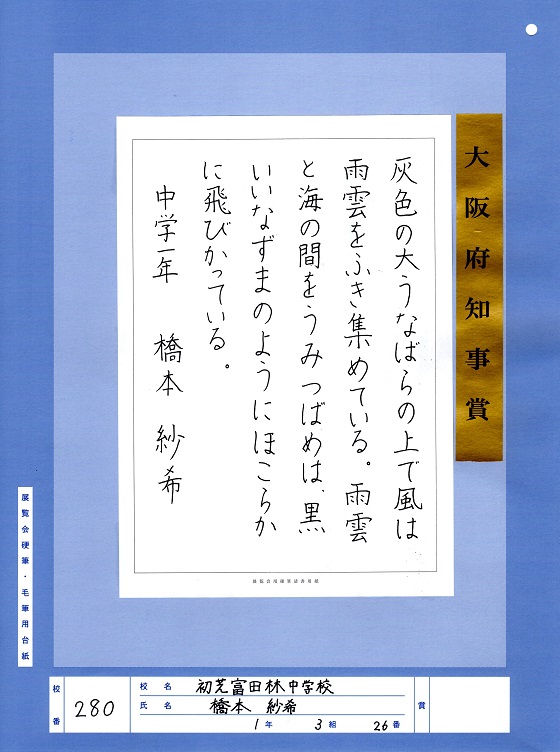 大阪府知事賞
灰色の大うなばらの上で風は
雨雲をふき集めている。雨雲
と海の間をうみつばめは、黒
いいなずまのようにほこらか
に飛びかっている。
中学一年 橋本 紗希
展覧会硬筆・毛筆用台紙
校番 280
校名 初芝富田林中学校
氏名 橋本 紗希
1年 3組 26番
賞